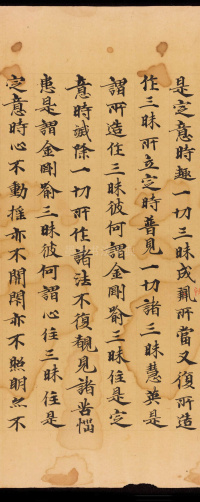 是定意時趣一切三昧成就所當又復所造
住三昧所立定時普見一切諸三昧慧英是
謂所造住三昧彼何謂金剛喻三昧住是定
意時滅除一切所住諸法不復覩見諸苦惱
患是謂金剛喻三昧彼何謂心住三昧住是
定意時心不動搖亦不開閉亦不照明然不